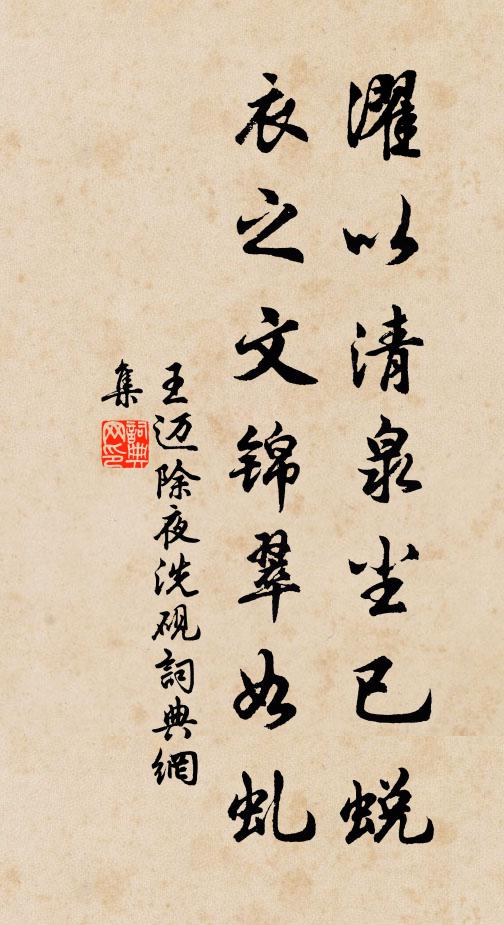 濯以清泉尘已蜕
衣之文锦翠如虬
王迈除夜洗砚詞典網
集
詞典
网印